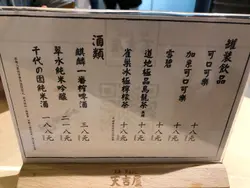 罐裝飲品
可口可樂 十八元
加系可口可樂 十八元
雪碧 十八元
道地極品烏龍茶 十八元
雀巢冰極檸檬茶 十八元
酒類
麒麟一番榨啤酒 三八元
翠水純米吟釀 二一八元
千代の園純米酒 一八八元
天吉屋